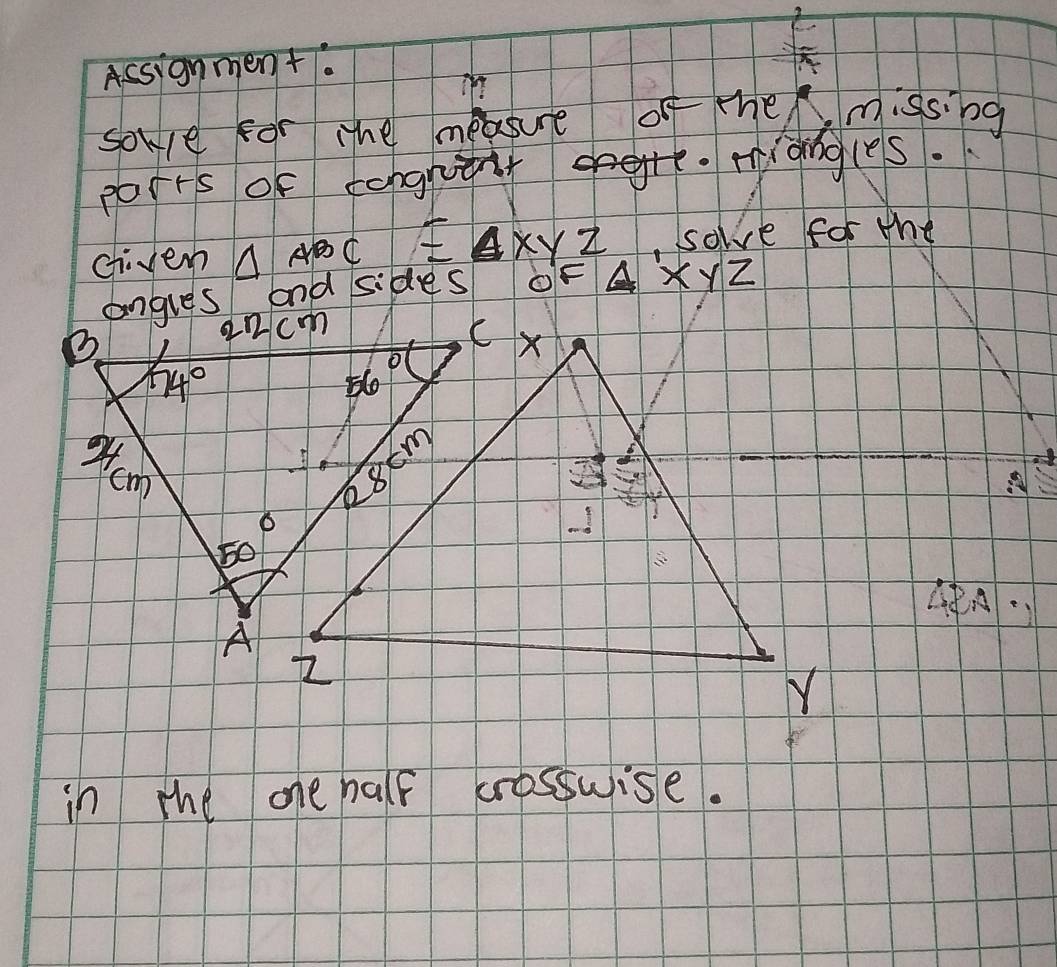 Assignment:
solve for the measure of the missing
parts of congruent triangles.
Given Δ ABC ≅ Δ XYZ, solve for the
angles and sides OF Δ XYZ
B 22 cm C X
74° 56°
24 cm 28 cm
50°
A
Z
Y
in the one half crosswise.